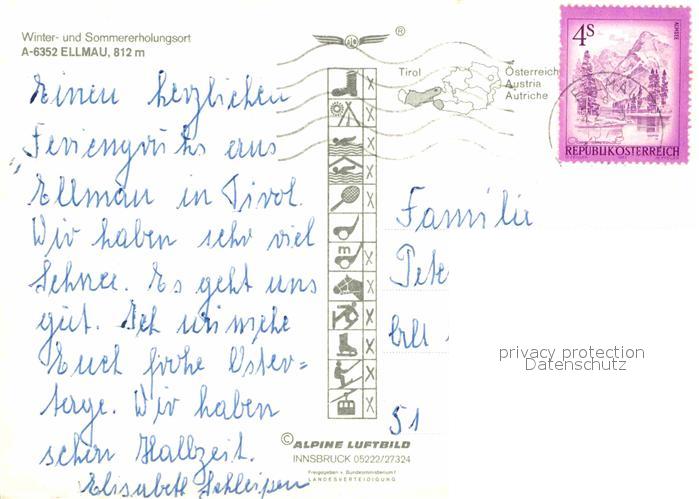 Winter- und Sommererholungsort
A-6352 ELLMAU, 812 m
Einen herzlichen
Feriengruß aus
Ellmau in Tirol.
Wir haben sehr viel
Schnee. Es geht uns
gut. Ich wünsche
Euch frohe Oster=
tage. Wir haben
schon Halbzeit.
Elisabeth Schleipen
®
Tirol
Österreich
Austria
Autriche
4 S
ALMSEE
REPUBLIK ÖSTERREICH
Familie
Pete
51
privacy protection
Datenschutz
© ALPINE LUFTBILD
INNSBRUCK 05222/27324
Freigegeben v. Bundesministerium f.
LANDESVERTEIDIGUNG